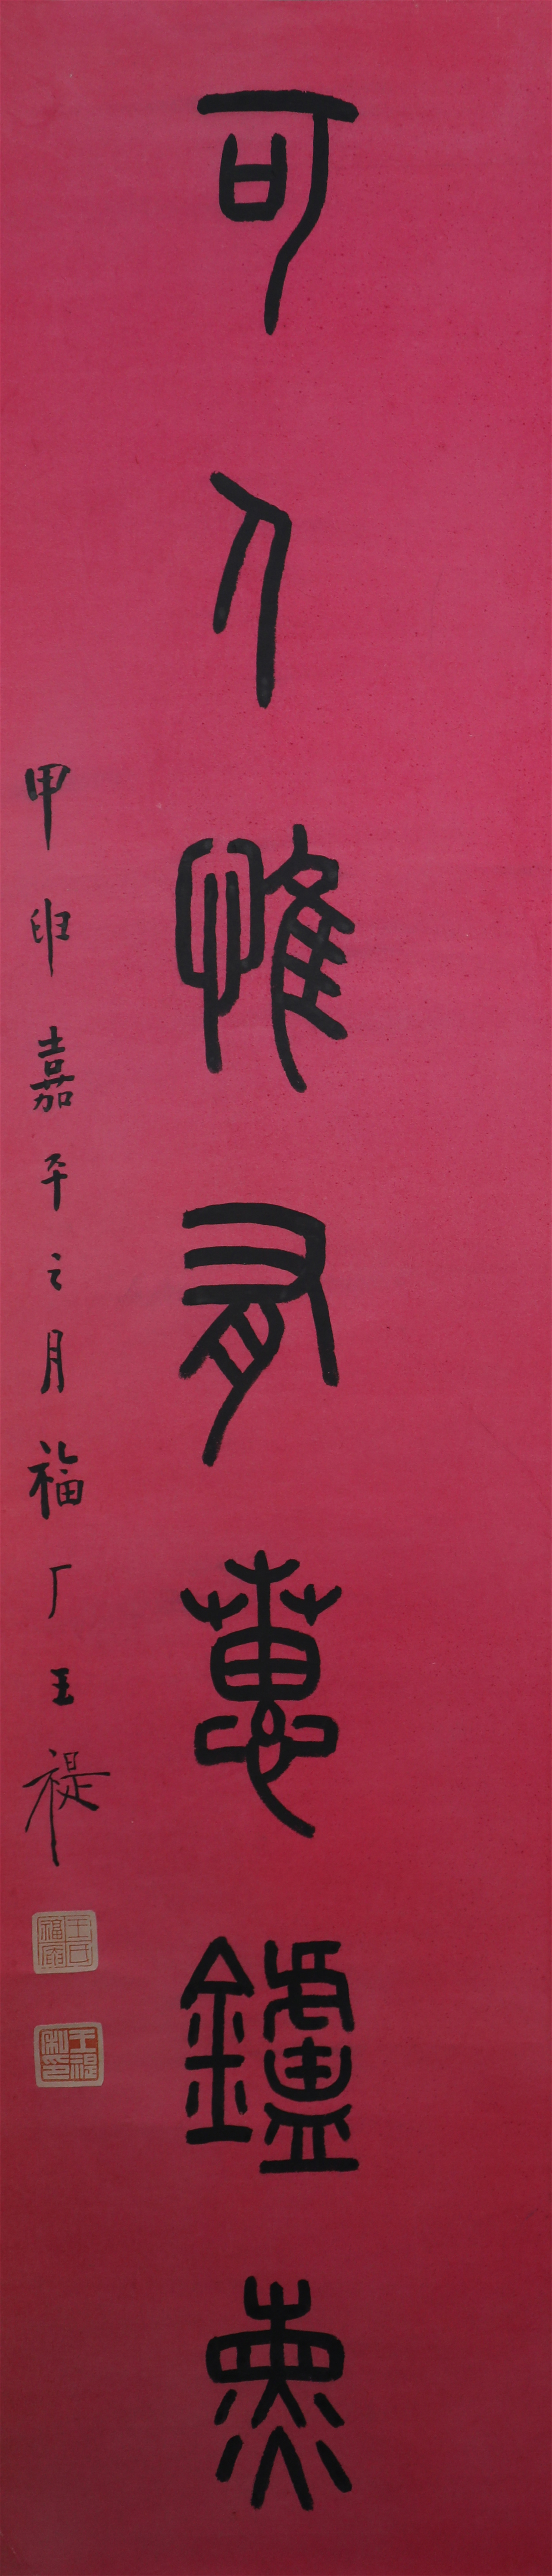 可人惟有蕙鑪熏
甲申嘉平之月福厂王禔
王氏福厂
王禔私印